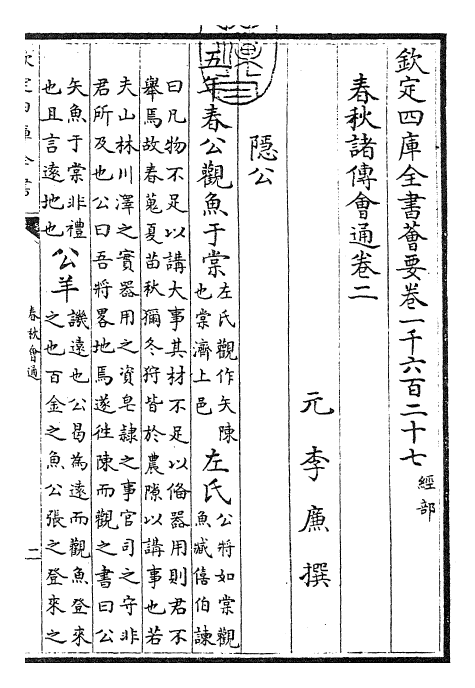 欽定四庫全書薈要卷一千六百二十七 經部
春秋諸傳會通卷二
元 李廉 撰
隱公
五年春公觀魚于棠 左氏觀作矢陳
也棠濟上邑 左氏 公將如棠觀
魚臧僖伯諫
曰凡物不足以講大事其材不足以備器用則君不
舉焉故春蒐夏苗秋獮冬狩皆於農隙以講事也若
夫山林川澤之實器用之資皂隸之事官司之守非
君所及也公曰吾將畧地焉遂徃陳而觀之書曰公
矢魚于棠非禮
也且言遠地也 公羊 譏遠也公曷為遠而觀魚登來
之也百金之魚公張之登來之
欽定四庫全書
春秋會通
二